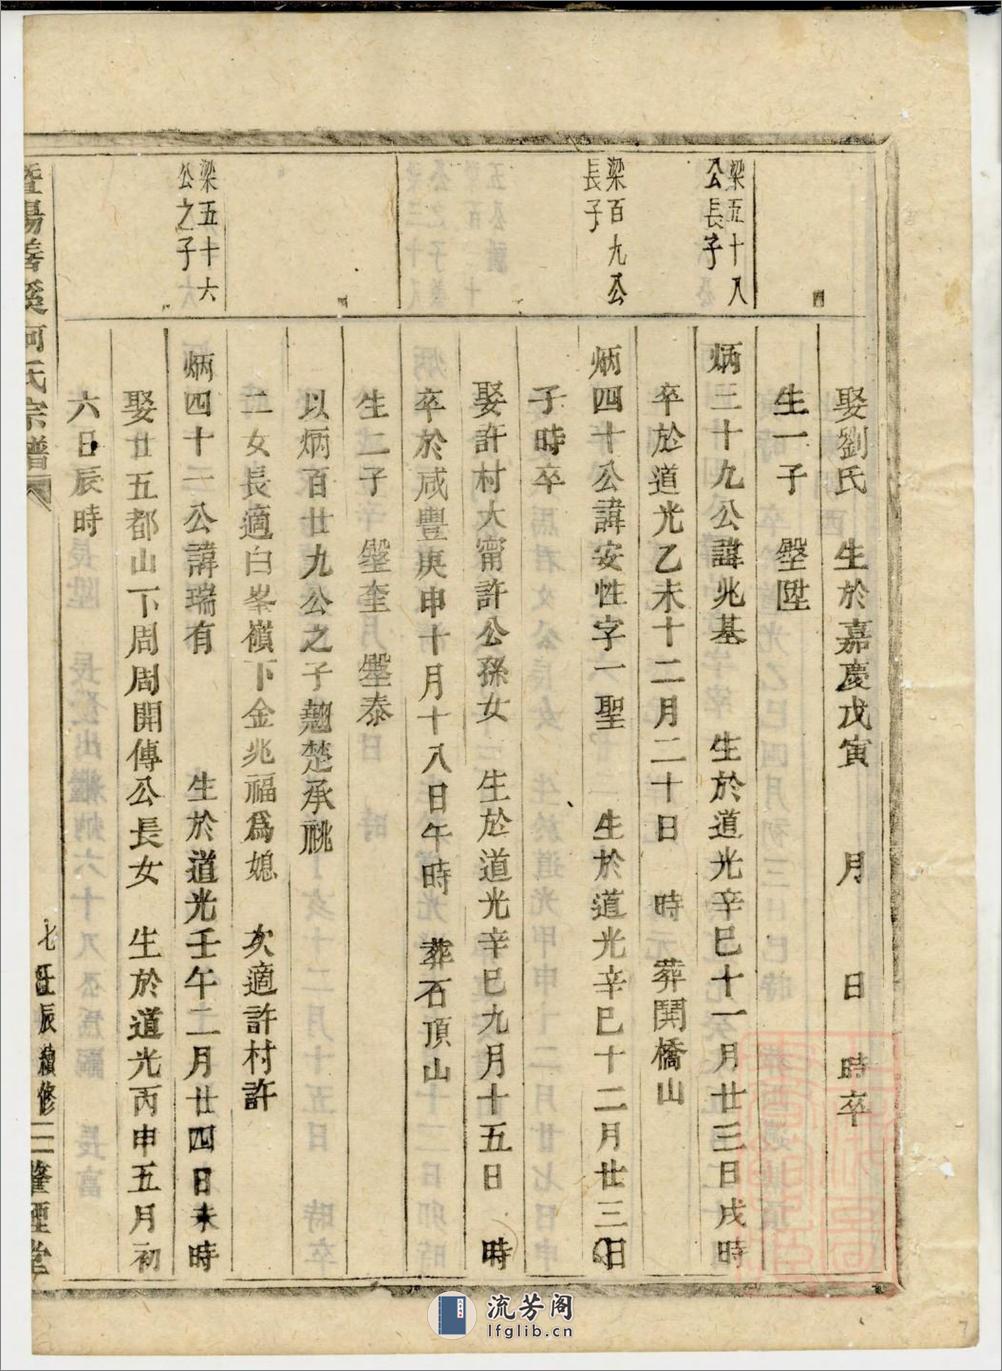 娶劉氏 生於嘉慶戊寅 月 日 時卒
生一子 壂陞
梁五十八
公長子
炳三十九公諱兆基 生於道光辛巳十一月廿三日戌時
卒於道光乙未十二月二十日 時 葬閧橋山
梁百九公
長子
炳四十公諱安性字一聖 生於道光辛巳十二月廿三日
子時卒
娶許村大甯許公孫女 生於道光辛巳九月十五日 時
卒於咸豐庚申十月十八日午時 葬石頂山
生二子 壂奎 壂泰
以炳百廿九公之子翹楚承祧
二女長適白峯嶺下金兆福為媳 次適許村許
梁五十六
公之子
炳四十二公諱瑞有 生於道光壬午二月廿四日未時
娶廿五都山下周周開傳公長女 生於道光丙申五月初
六日辰時
暨陽 溪何氏宗譜
七 壬辰續修 二 堂
流芳阁
lfglib.cn